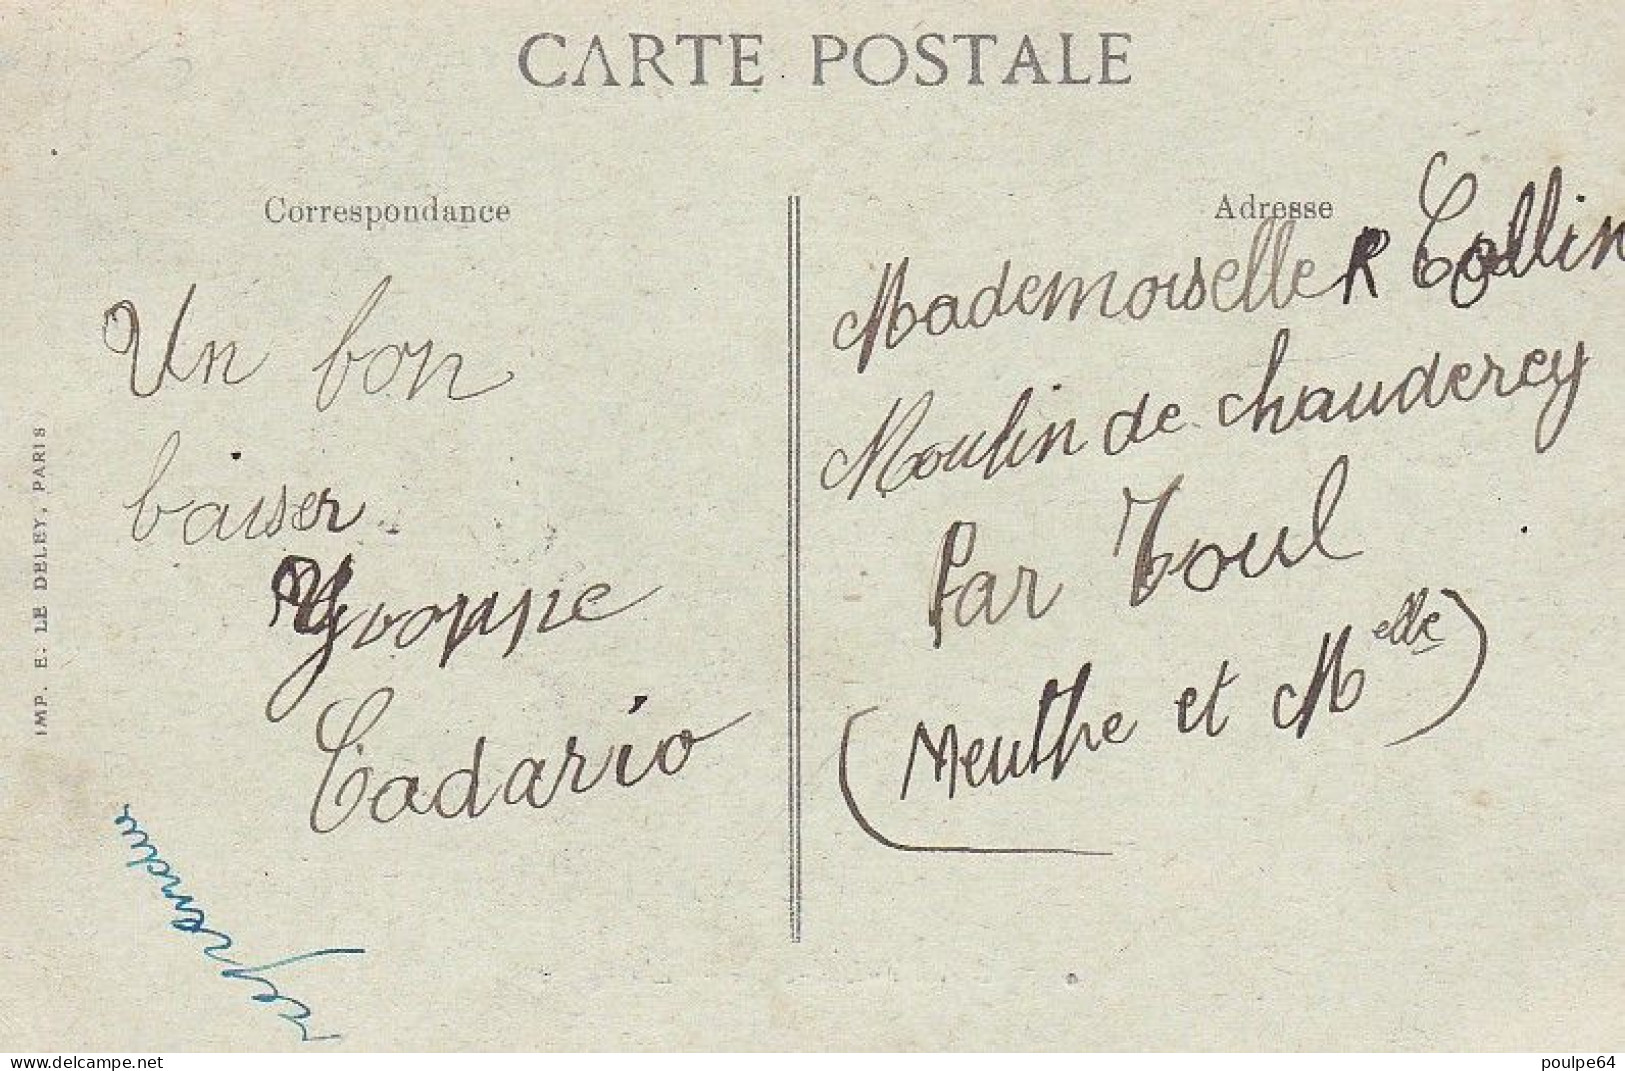 CARTE POSTALE
Correspondance
Un bon
baiser
Yvonne
Cadario
répondu
IMP. E. LE DELEY, PARIS
Adresse
Mademoiselle R Collin
Moulin de chauderey
Par Toul
(Meuthe et Melle)
www.delcampe.net
poulpe64